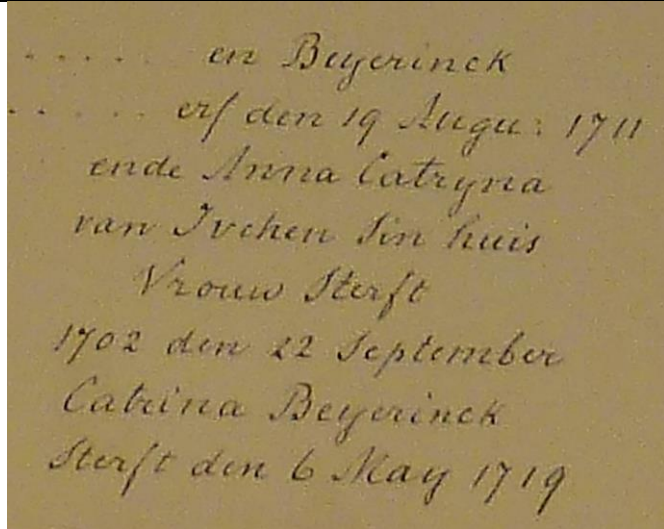 ..... en Beyerinck
..... erf den 19 Augu: 1711
ende Anna Catryna
van Ivchen sin huis
Vrouw Sterft
1702 den 22 September
Catrina Beyerinck
Sterft den 6 May 1719